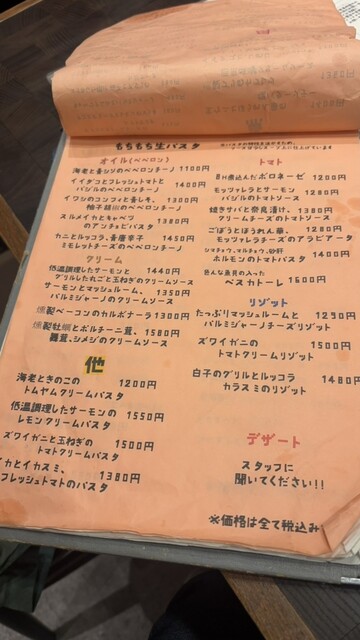 もちもち生パスタ
オイル(ペペロン)
海老と青シソのペペロンチーノ 1100円
イイダコとフレッシュトマトと
バジルのペペロンチーノ 1400円
イワシのコンフィと青しそ、
柚子胡椒のペペロンチーノ 1300円
スルメイカとキャベツ
のアンチョビパスタ 1380円
カニとルッコラ、青唐辛子
ミモレットチーズのペペロンチーノ 1450円
クリーム
低温調理したサーモンと 1440円
グリルした丸ごと玉ねぎのクリームソース
サーモンとマッシュルーム、 1350円
パルミジャーノのクリームソース
燻製ベーコンのカルボナーラ 1300円
燻製牡蠣とポルチーニ茸、 1580円
舞茸、シメジのクリームソース
他
海老ときのこの 1200円
トムヤムクリームパスタ
低温調理したサーモンの 1550円
レモンクリームパスタ
ズワイガニと玉ねぎの 1500円
トマトクリームパスタ
カとイカスミ、 1380円
フレッシュトマトのパスタ
トマト
煮込んだボロネーゼ 1200円
モッツァレラとサーモン 1280円
バジルのトマトソース
焼きサバと奈良漬け、 1380円
クリームチーズのトマトソース
ごぼうとほうれん草、 1280円
モッツァレラチーズのアラビアータ
ホルモンのトマトパスタ 1400円
色んな魚貝の入った
ペスカトーレ 1600円
リゾット
たっぷりマッシュルームと 1290円
パルミジャーノチーズリゾット
ズワイガニの 1500円
トマトクリームリゾット
白子のグリルとルッコラ 1480円
カラスミのリゾット
デザート
スタッフに
聞いてください!!
※価格は全て税込み